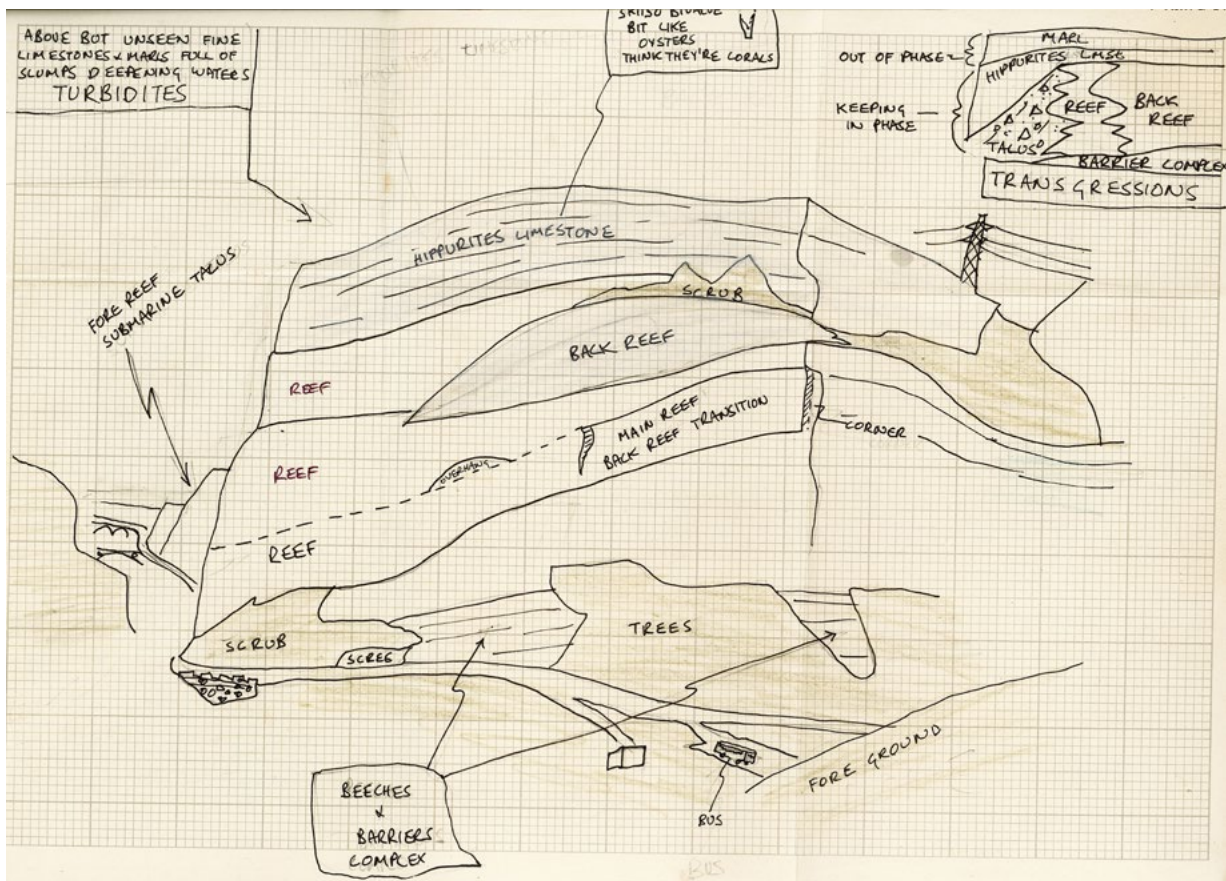 ABOVE BUT UNSEEN FINE
LIMESTONES & MARLS FULL OF
SLUMPS DEEPENING WATERS
TURBIDITES
BIVALVE
BIT LIKE
OYSTERS
THINK THEY'RE CORALS
OUT OF PHASE
KEEPING
IN PHASE
MARL
HIPPURITES LMSE
REEF
BACK
REEF
TALUS
BARRIER COMPLEX
TRANSGRESSIONS
HIPPURITES LIMESTONE
SCRUB
FORE REEF
SUBMARINE TALUS
BACK REEF
REEF
MAIN REEF
BACK REEF TRANSITION
CORNER
REEF
OVERHANG
REEF
SCRUB
SCREE
TREES
FORE GROUND
BEECHES
&
BARRIERS
COMPLEX
BUS
BUS